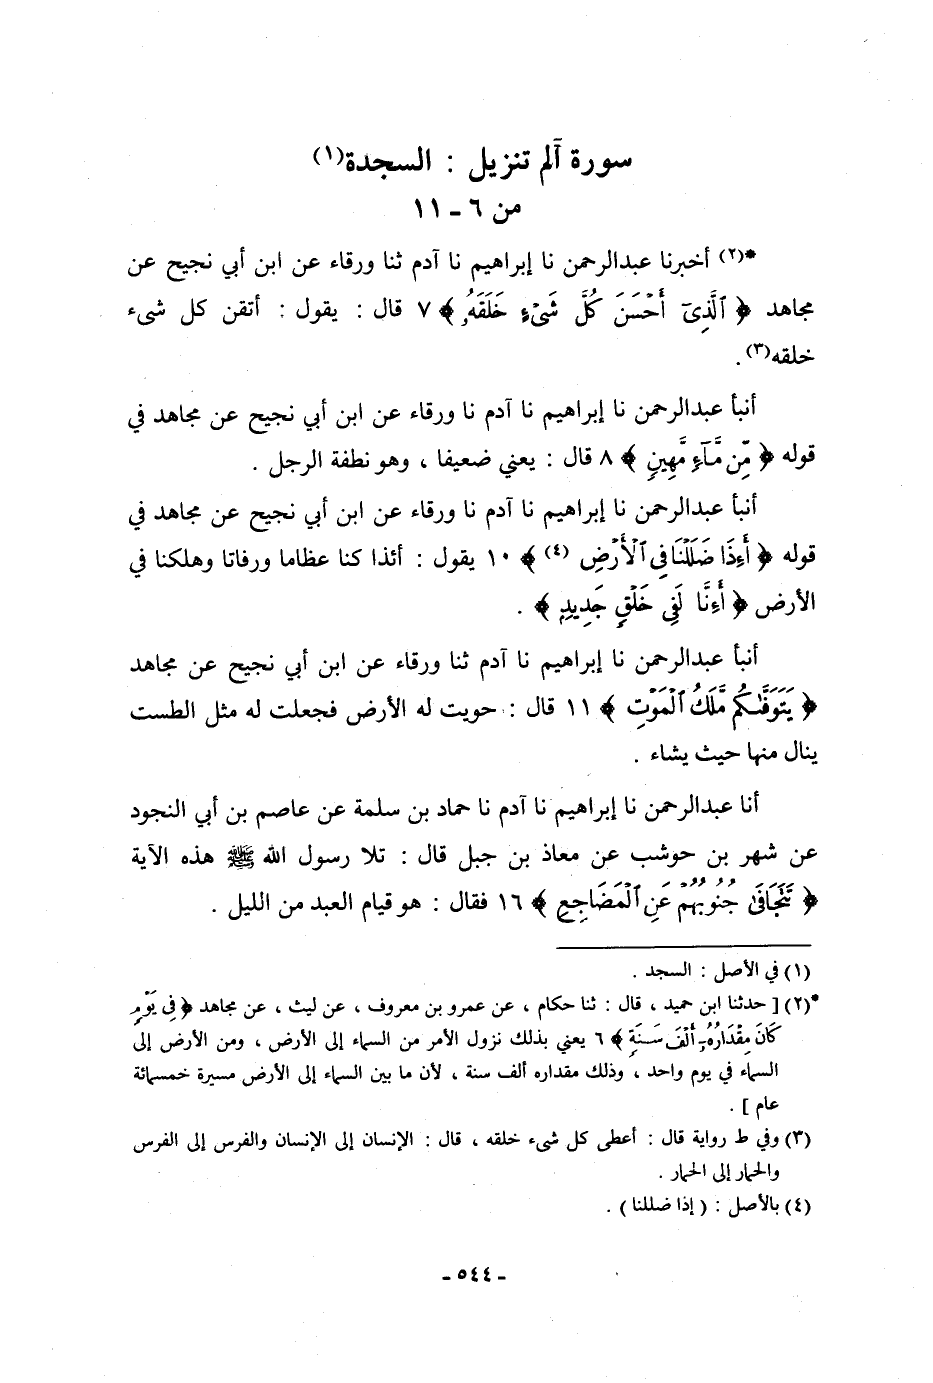 سورة آلم تنزيل : السجدة(١)
من ٦ - ١١
*(٢) أخبرنا عبدالرحمن نا إبراهيم نا آدم ثنا ورقاء عن ابن أبي نجيح عن
مجاهد ﴿ ٱلَّذِىٓ أَحْسَنَ كُلَّ شَىْءٍ خَلَقَهُۥ ﴾ ٧ قال : يقول : أتقن كل شىء
خلقه(٣) .
أنبأ عبدالرحمن نا إبراهيم نا آدم نا ورقاء عن ابن أبي نجيح عن مجاهد في
قوله ﴿ مِّن مَّآءٍ مَّهِينٍ ﴾ ٨ قال : يعني ضعيفا ، وهو نطفة الرجل .
أنبأ عبدالرحمن نا إبراهيم نا آدم نا ورقاء عن ابن أبي نجيح عن مجاهد في
قوله ﴿ أَءِذَا ضَلَلْنَا فِى ٱلْأَرْضِ (٤) ﴾ ١٠ يقول : أئذا كنا عظاما ورفاتا وهلكنا في
الأرض ﴿ أَءِنَّا لَفِى خَلْقٍ جَدِيدٍ ﴾ .
أنبأ عبدالرحمن نا إبراهيم نا آدم ثنا ورقاء عن ابن أبي نجيح عن مجاهد
﴿ يَتَوَفَّىٰكُم مَّلَكُ ٱلْمَوْتِ ﴾ ١١ قال : حويت له الأرض فجعلت له مثل الطست
ينال منها حيث يشاء .
أنا عبدالرحمن نا إبراهيم نا آدم نا حماد بن سلمة عن عاصم بن أبي النجود
عن شهر بن حوشب عن معاذ بن جبل قال : تلا رسول الله ﷺ هذه الآية
﴿ تَتَجَافَىٰ جُنُوبُهُمْ عَنِ ٱلْمَضَاجِعِ ﴾ ١٦ فقال : هو قيام العبد من الليل .
(١) في الأصل : السجد .
*(٢) [ حدثنا ابن حميد ، قال : ثنا حكام ، عن عمرو بن معروف ، عن ليث ، عن مجاهد ﴿ فِى يَوْمٍ
كَانَ مِقْدَارُهُۥٓ أَلْفَ سَنَةٍ ﴾ ٦ يعني بذلك نزول الأمر من السماء إلى الأرض ، ومن الأرض إلى
السماء في يوم واحد ، وذلك مقداره ألف سنة ، لأن ما بين السماء إلى الأرض مسيرة خمسمائة
عام ] .
(٣) وفي ط رواية قال : أعطى كل شىء خلقه ، قال : الإنسان إلى الإنسان والفرس إلى الفرس
والحمار إلى الحمار .
(٤) بالأصل : ( إذا ضللنا ) .
- ٥٤٤ -